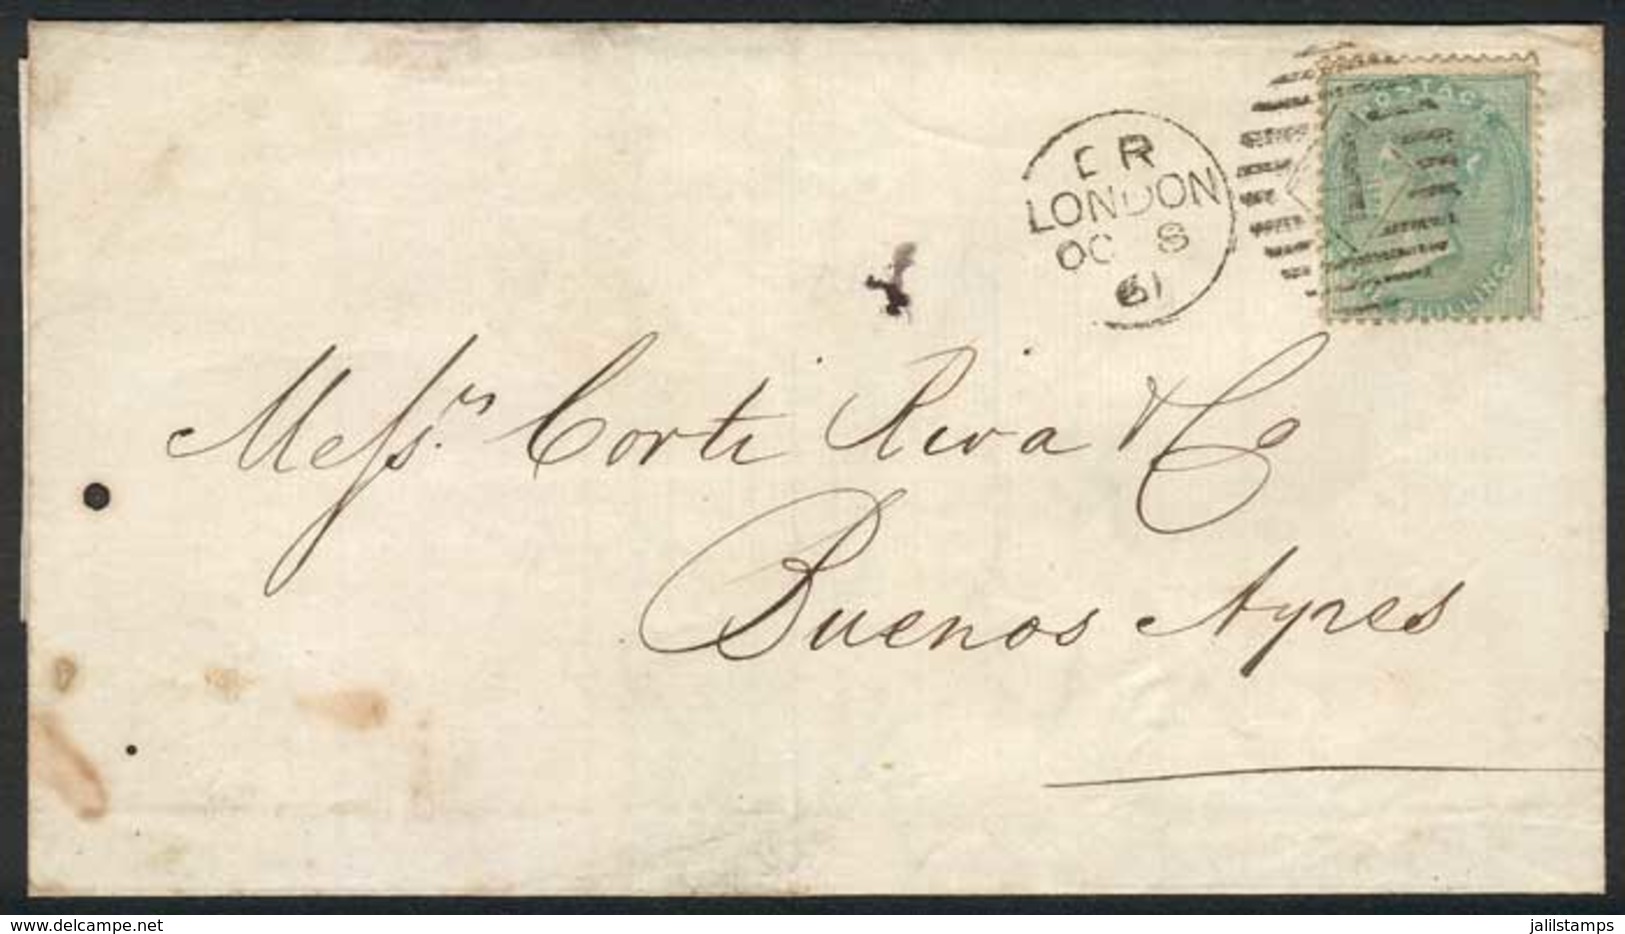 POSTAGE
SHILLING
LONDON
OC 8
61
Messrs. Corti Riva & Co
Buenos Ayres
delcampe.net
jalilstamps